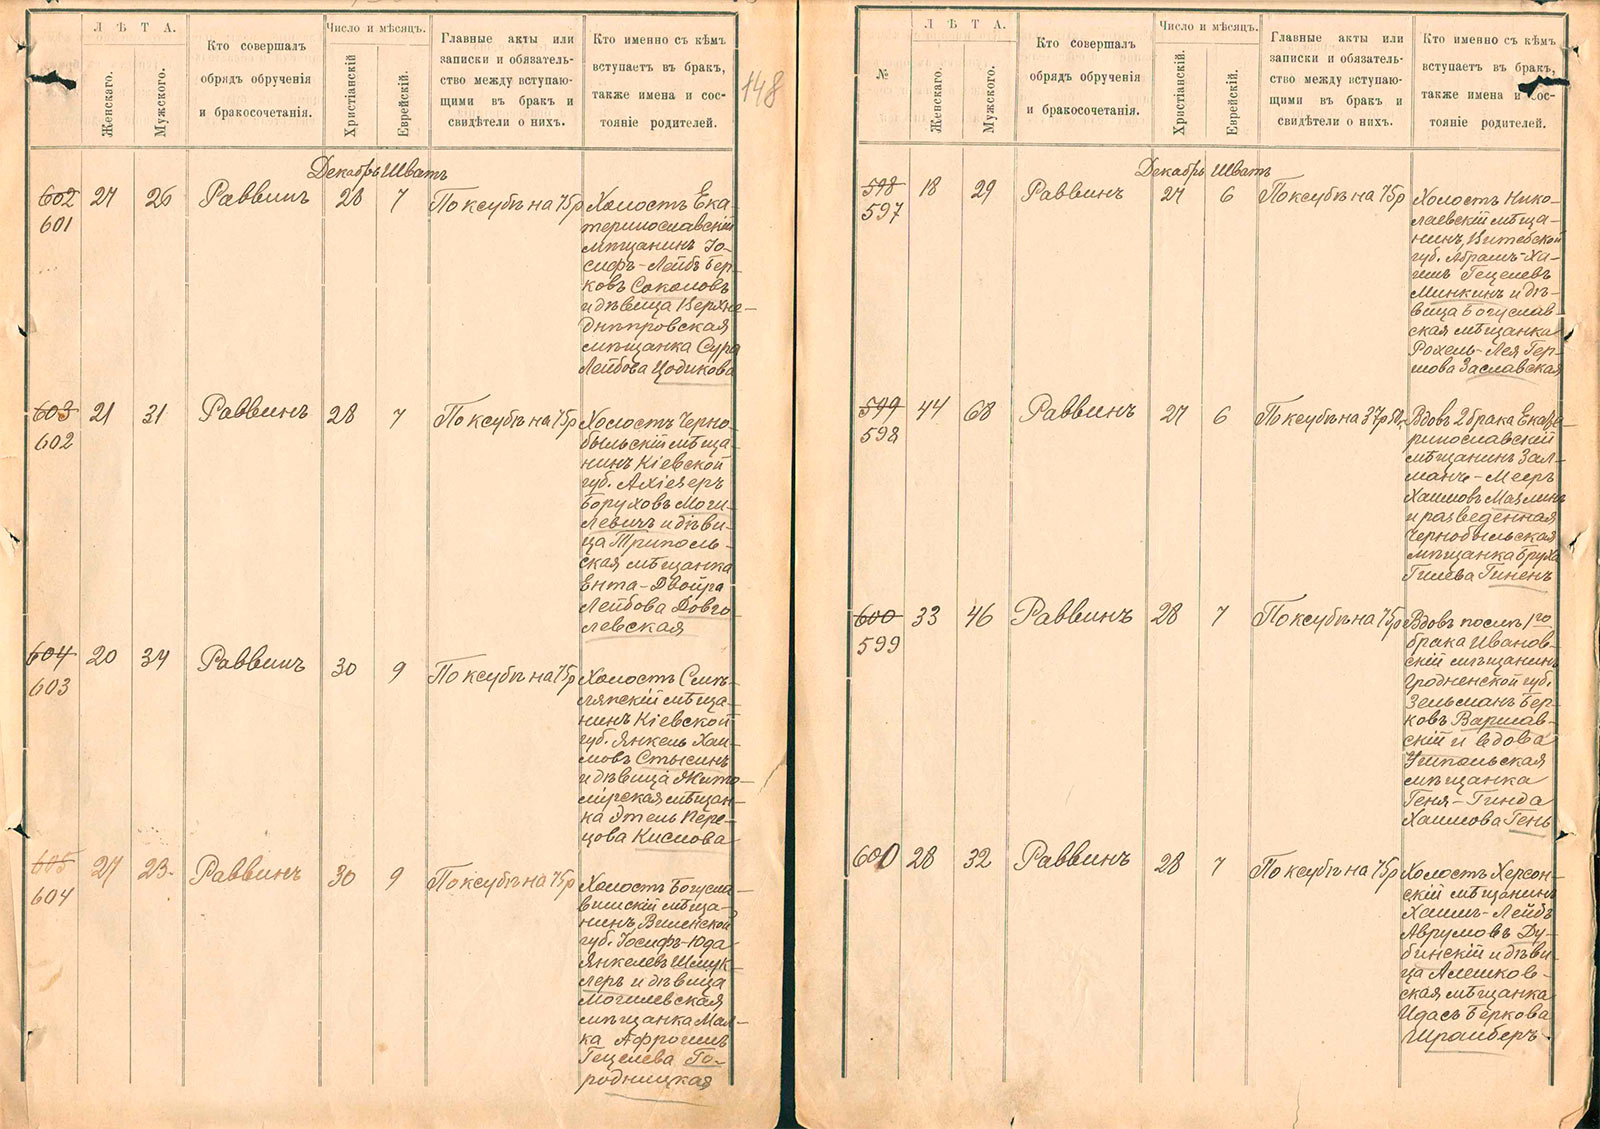 ЛѢТА.
Женскаго.
Мужскаго.
Кто совершалъ
обрядъ обрученія
и бракосочетанія.
Число и мѣсяцъ.
Христіанскій
Еврейскій.
Главные акты или
записки и обязатель-
ство между вступаю-
щими въ бракъ и
свидѣтели о нихъ.
Кто именно съ кѣмъ
вступаетъ въ бракъ,
также имена и сос-
тояніе родителей.
148
Декабрь Шватъ
602
601
27 26 Раввинъ 28 7 По ксубѣ на 75р
Холостъ Ека-
теринославскій
мѣщанинъ Іо-
сифъ-Лейбъ Бер-
ковъ Соколовъ
и дѣвица Верхне-
днѣпровская
мѣщанка Сура
Лейбова Цодикова
603
602
21 31 Раввинъ 28 7 По ксубѣ на 75р
Холостъ Черно-
быльскій мѣща-
нинъ Кіевской
губ. Ахіезеръ
Боруховъ Моги-
левичъ и дѣви-
ца Триполь-
ская мѣщанка
Ента-Двойра
Лейбова Довго-
левская
604
603
20 34 Раввинъ 30 9 По ксубѣ на 75р
Холостъ Смѣ-
лянскій мѣща-
нинъ Кіевской
губ. Янкель Хаи-
мовъ Стысинъ
и дѣвица Жито-
мірская мѣщан-
ка Этель Пере-
цова Кислова
605
604
27 23 Раввинъ 30 9 По ксубѣ на 75р
Холостъ Богусла-
вишскій мѣща-
нинъ Виленской
губ. Іосифъ-Юда
Янкелевъ Шмук-
леръ и дѣвица
Могилевская
мѣщанка Мал-
ка Афроимъ
Гецелева Го-
родницкая
№
ЛѢТА.
Женскаго.
Мужскаго.
Кто совершалъ
обрядъ обрученія
и бракосочетанія.
Число и мѣсяцъ.
Христіанскій.
Еврейскій.
Главные акты или
записки и обязатель-
ство между вступаю-
щими въ бракъ и
свидѣтели о нихъ.
Кто именно съ кѣмъ
вступаетъ въ бракъ,
также имена и сос-
тояніе родителей.
Декабрь Шватъ
598
597
18 29 Раввинъ 27 6 По ксубѣ на 75р
Холостъ Нико-
лаевскій мѣща-
нинъ, Витебской
губ. Абрамъ-Ха-
имъ Гецелевъ
Минкинъ и дѣ-
вица Богуслав-
ская мѣщанка
Рохель-Лея Гер-
шова Заславская
599
598
44 68 Раввинъ 27 6 По ксубѣ на 37р 50к
Вдовъ 2 брака Екате-
ринославскій
мѣщанинъ Зал-
манъ-Мееръ
Хаимовъ Мазлинъ
и разведенная
Чернобыльская
мѣщанка Бруха
Гилева Гиненъ
600
599
33 46 Раввинъ 28 7 По ксубѣ на 75р
Вдовъ послѣ 1го
брака Иванов-
скій мѣщанинъ
Гродненской губ.
Зельманъ Бер-
ковъ Варшав-
скій и вдова
Игнпольская
мѣщанка
Геня-Гинда
Хаимова Гень
600
28 32 Раввинъ 28 7 По ксубѣ на 75р
Холостъ Херсон-
скій мѣщанинъ
Хаимъ-Лейбъ
Аврумовъ Ду-
бинскій и дѣви-
ца Алешков-
ская мѣщанка
Идасъ Беркова
Шрайберъ